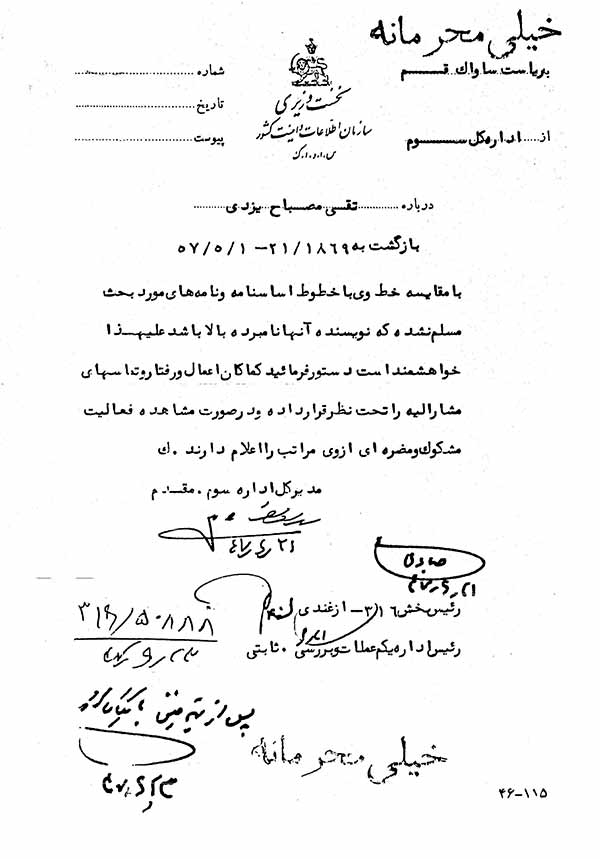 خیلی محرمانه
بریاست ساواک قم
شماره
نخست وزیری
تاریخ
سازمان اطلاعات و امنیت کشور
س.ا.و.ا.ک
از اداره کل سوم
پیوست
درباره تقی مصباح یزدی
بازگشت به ۲۱/۱۸۶۹ - ۵۷/۵/۱
با مقایسه خط وی با خطوط اساسنامه و نامه‌های مورد بحث
مسلم نشده که نویسنده آنها نامبرده بالا باشد علیهذا
خواهشمند است دستور فرمائید کماکان اعمال و رفتار و تماسهای
مشارالیه را تحت نظر قرار داده و در صورت مشاهده فعالیت
مشکوک و مضره ای از وی مراتب را اعلام دارند . ک
مدیر کل اداره سوم . مقدم
رئیس بخش ۳۱۶ - ازغندی
۳۱۶/۵۰۸۸۸
رئیس اداره یکم عملیات و بررسی . ثابتی
پس از
خیلی محرمانه
۴۶-۱۱۵